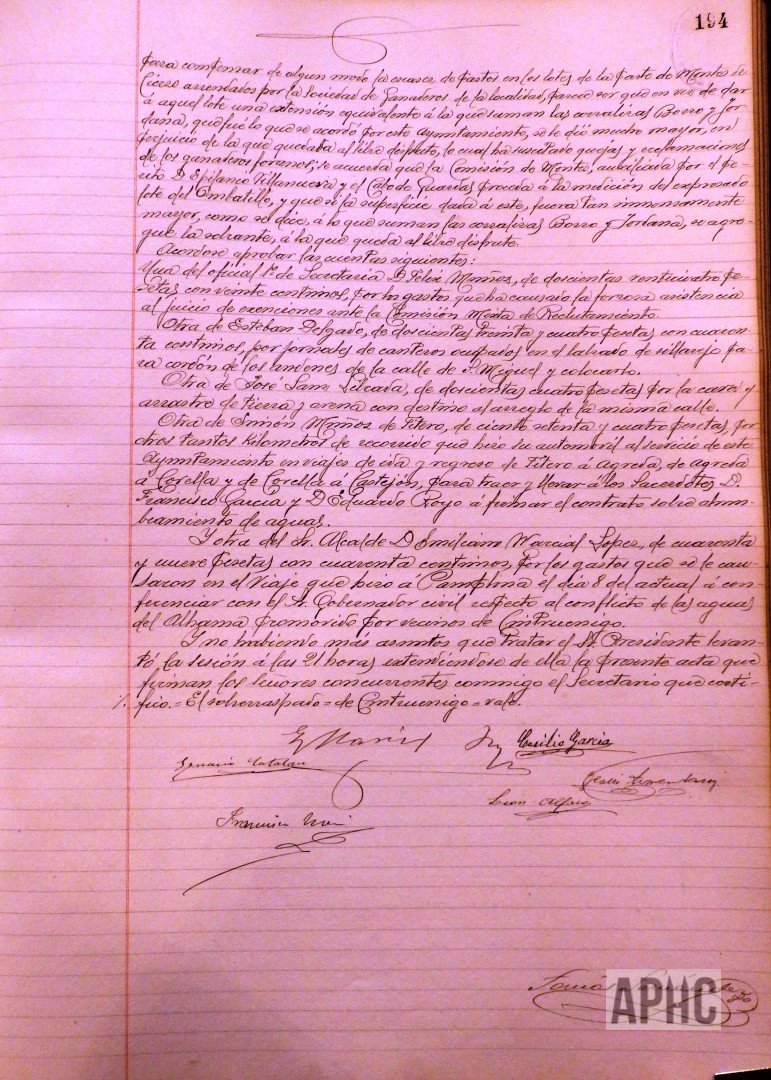 194
para compensar de algun modo la escasez de pastos en los lotes de la parte de Montes de
Cierzo arrendados por la Sociedad de Ganaderos de la localidad, parece ser que en vez de dar
á aquel lote una extensión equivalente á la que suman las corralizas Borro y Jor-
dana, que fué lo que se acordó por este Ayuntamiento, se le dió mucho mayor, en
perjuicio de la que quedaba al libre disfrute, lo cual ha suscitado quejas y reclamaciones
de los ganaderos foranos; se acuerda que la Comisión de Montes, auxiliada por el pe-
rito D. Epifanio Villanueva y el Cabo de Guardas proceda á la medición del expresado
lote del Ombatillo, y que si la superficie dada á este, fuera tan inmensamente
mayor, como se dice, á lo que suman las corralizas Borro y Jordana, se agre-
gue la sobrante, á la que queda al libre disfrute.
Acordose aprobar las cuentas siguientes:
Una del oficial 1º de Secretaria D. Felix Muñoz, de doscientas venticuatro pe-
setas con veinte centimos, por los gastos que ha causado la forzosa asistencia
al juicio de exenciones ante la Comisión Mixta de Reclutamiento.
Otra de Esteban Delgado, de doscientas treinta y cuatro pesetas con cuaren-
ta centimos, por jornales de canteros ocupados en el labrado de sillarejo pa-
ra cordón de los andenes de la calle de S. Miguel y colocarlo.
Otra de José Sanz, de doscientas cuatro pesetas por la cava y
arrastro de tierra y arena con destino al arreglo de la misma calle.
Otra de Simón Muñoz de Fitero, de ciento setenta y cuatro pesetas, por
otros tantos kilometros de recorrido que hizo su automovil al servicio de este
Ayuntamiento en viajes de ida y regreso de Fitero á Agreda, de Agreda
á Corella y de Corella á Castejón, para traer y llevar á los Sacerdotes D.
Francisco Garcia y D. Eduardo Royo á firmar el contrato sobre alum-
bramiento de aguas.
Y otra del Sr. Alcalde D. Emiliano Marcial Lopez, de cuarenta
y nueve pesetas con cuarenta centimos, por los gastos que se le cau-
saron en el viaje que hizo á Pamplona el día 8 del actual á con-
ferenciar con el Sr. Gobernador civil respecto al conflicto de las aguas
del Alhama promovido por vecinos de Cintruenigo.
Y no habiendo más asuntos que tratar el Sr. Presidente levan-
tó, la sesión á las 21 horas extendiéndose de ella la presente acta que
firman los señores concurrentes conmigo el Secretario que certi-
fico. = El sobrerraspado = de Cintruenigo = vale.
Cecilio Garcia
Genaro Catalan
Leon Alfaro
Francisco
Tomás
APHC